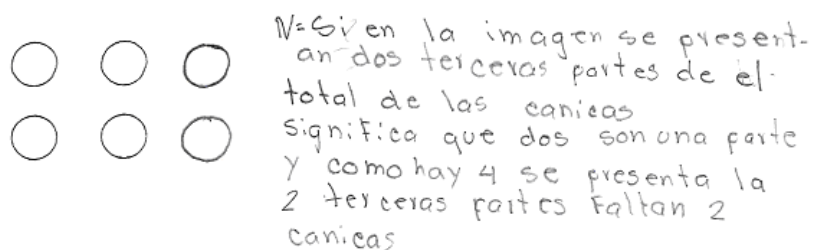 N=Si en la imagen se present-
an dos terceras partes de el
total de las canicas
significa que dos son una parte
y como hay 4 se presenta la
2 terceras partes Faltan 2
canicas